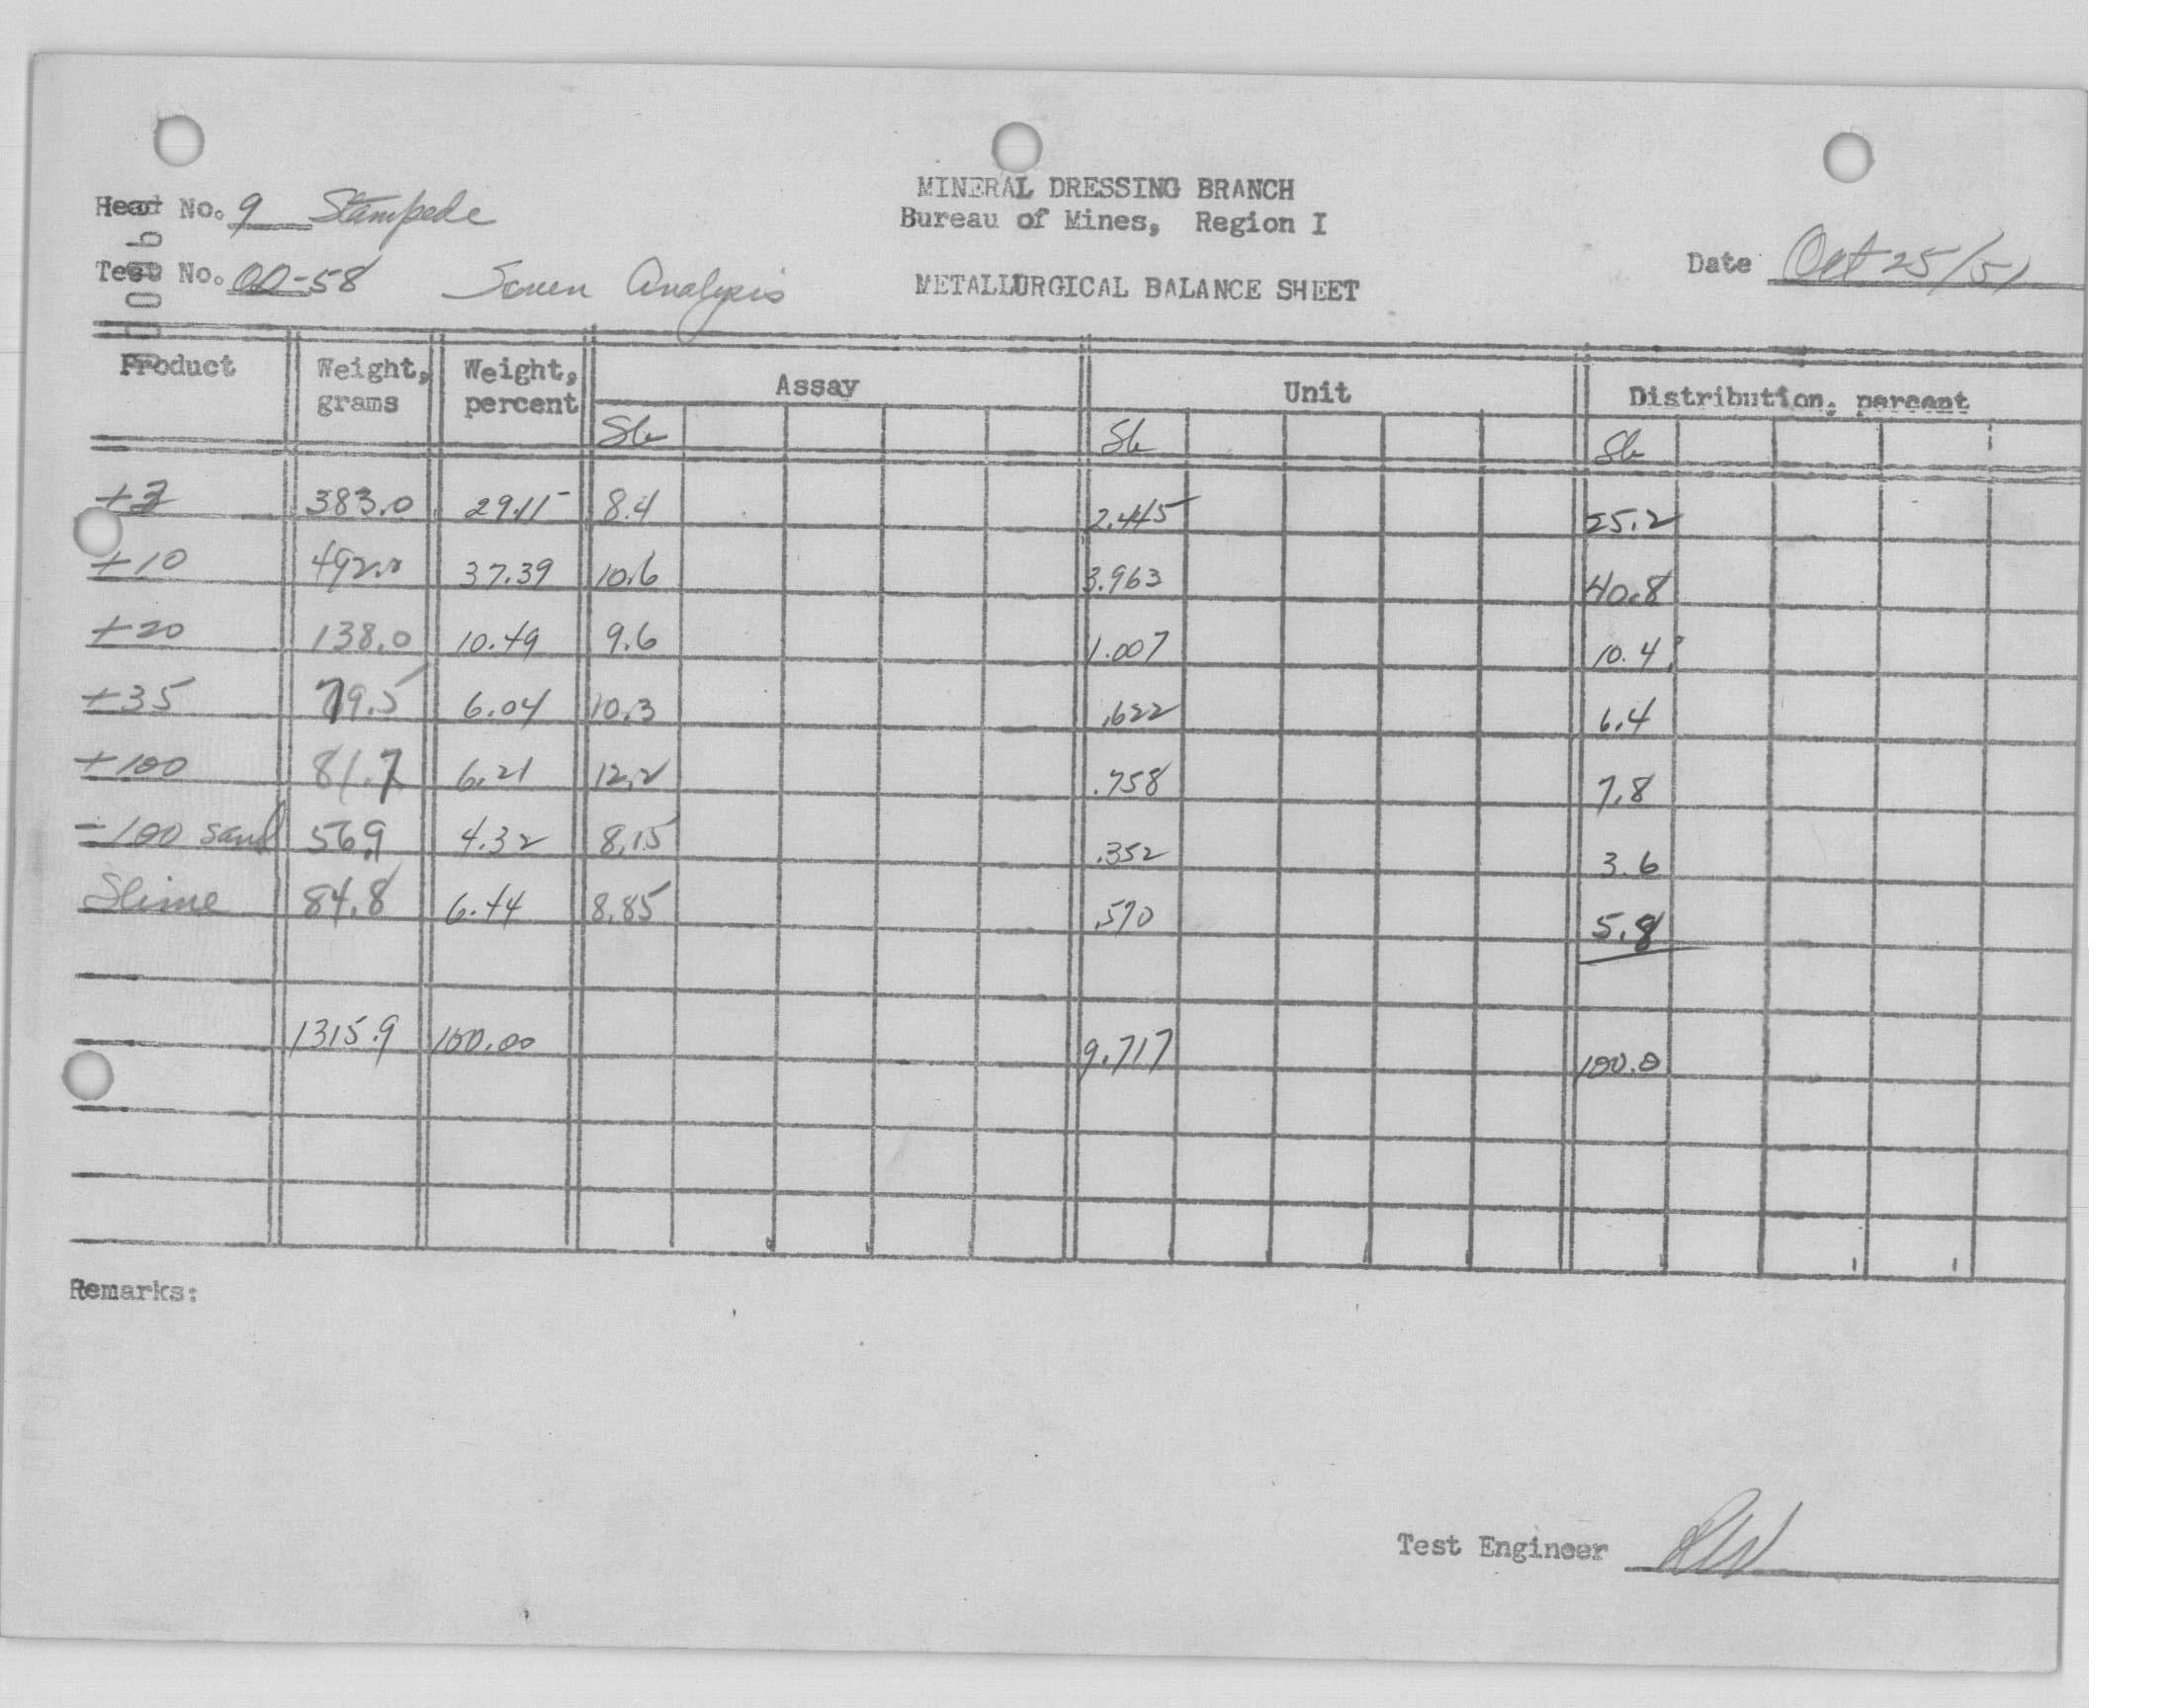 MINERAL DRESSING BRANCH
Head No. 9 Stampede
Bureau of Mines, Region I
Test No. OD-58 Screen Analysis
METALLURGICAL BALANCE SHEET
Date Oct 25/51
Product Weight, grams Weight, percent Assay Unit Distribution, percent
Sb Sb Sb
+3 383.0 29.11 8.4 2.445 25.2
+10 492.0 37.39 10.6 3.963 40.8
+20 138.0 10.49 9.6 1.007 10.4
+35 79.5 6.04 10.3 .622 6.4
+100 81.7 6.21 12.2 .758 7.8
-100 sand 56.9 4.32 8.15 .352 3.6
Slime 84.8 6.44 8.85 .570 5.8
1315.9 100.00 9.717 100.0
Remarks:
Test Engineer